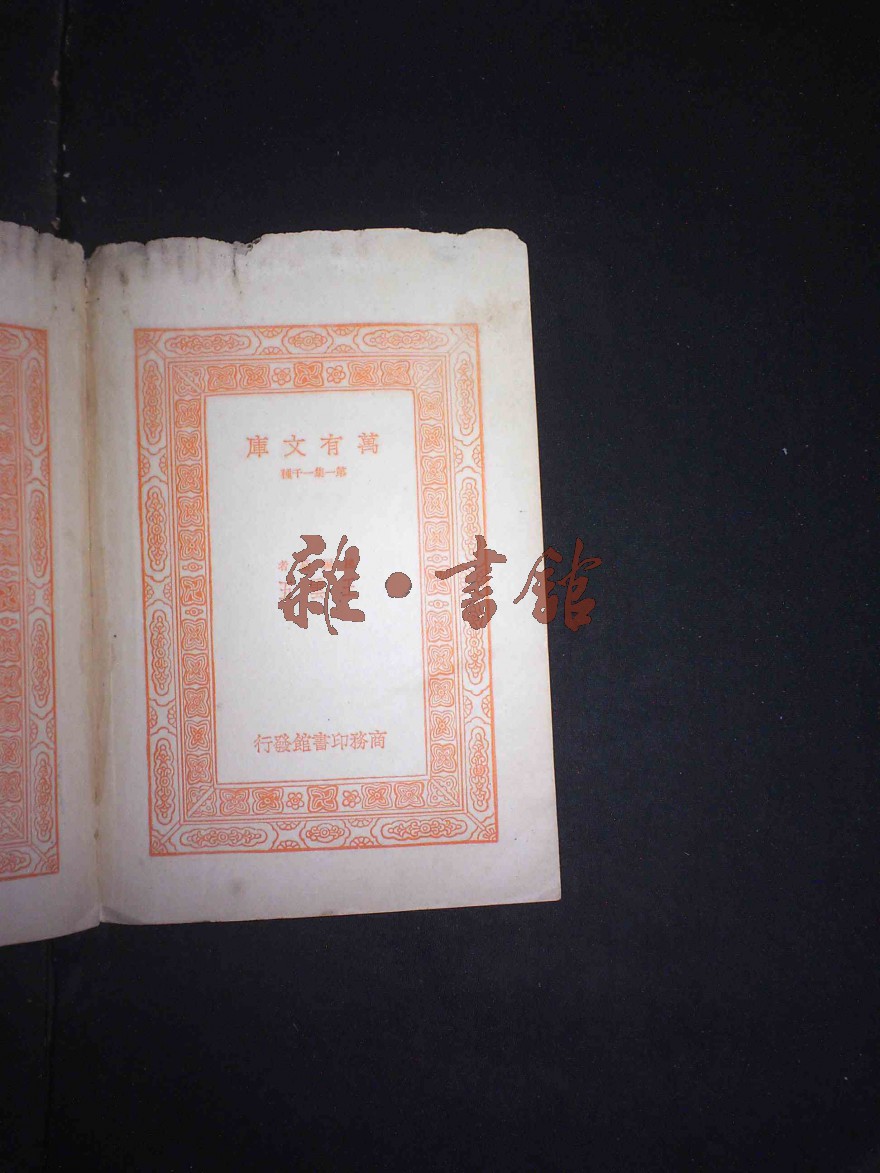 萬有文庫
第一集一千種
者
雜·書館
商務印書館發行